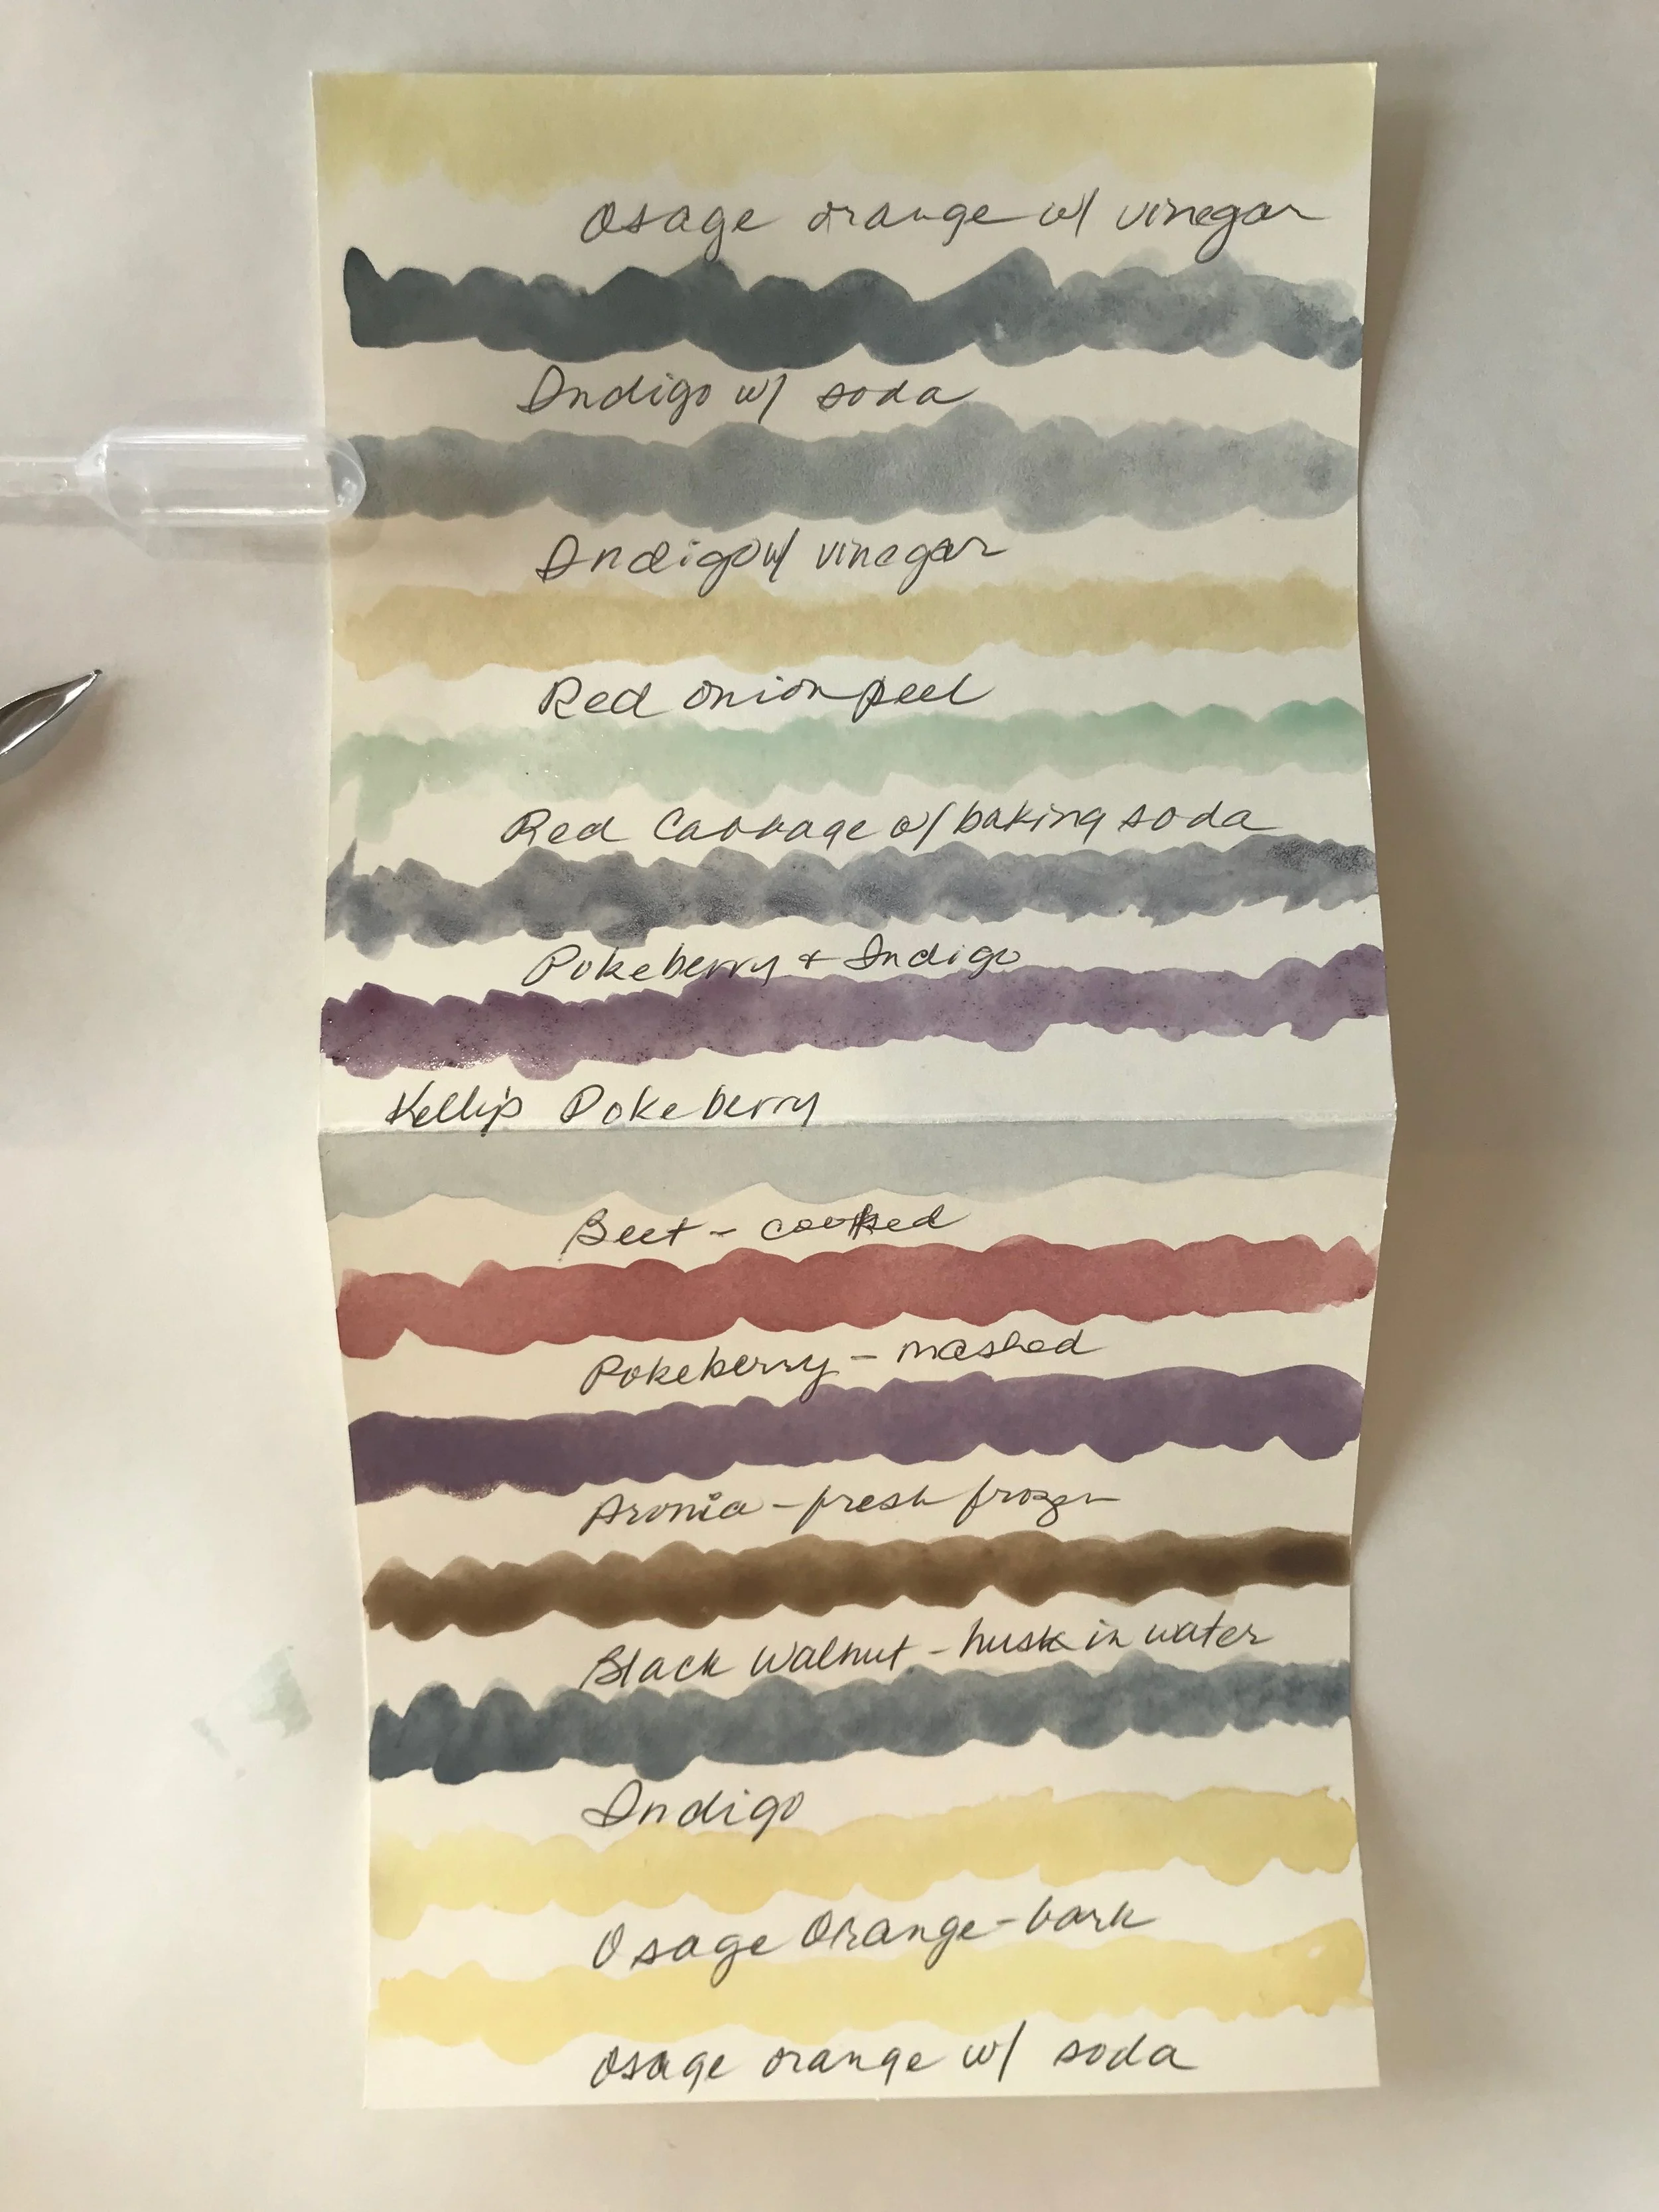 Osage orange w/ vinegar
Indigo w/ soda
Indigo w/ vinegar
Red onion peel
Red Cabbage w/ baking soda
Pokeberry + Indigo
Kelli's Pokeberry
Beet - cooked
Pokeberry - mashed
Aronia - fresh frozen
Black Walnut - husk in water
Indigo
Osage Orange - bark
Osage orange w/ soda